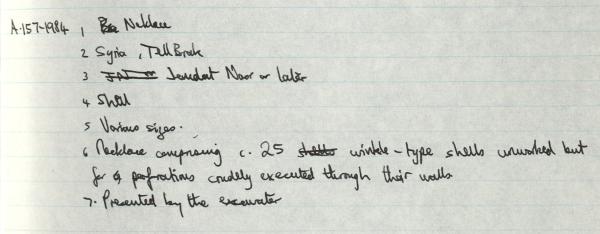 A.157-1984 1 Necklace
2 Syria, Tell Brak
3 Jemdat Nasr or later
4 Shell
5 Various sizes.
6 Necklace comprising c. 25 winkle-type shells unworked but
for perforations crudely executed through their walls
7. Presented by the excavator